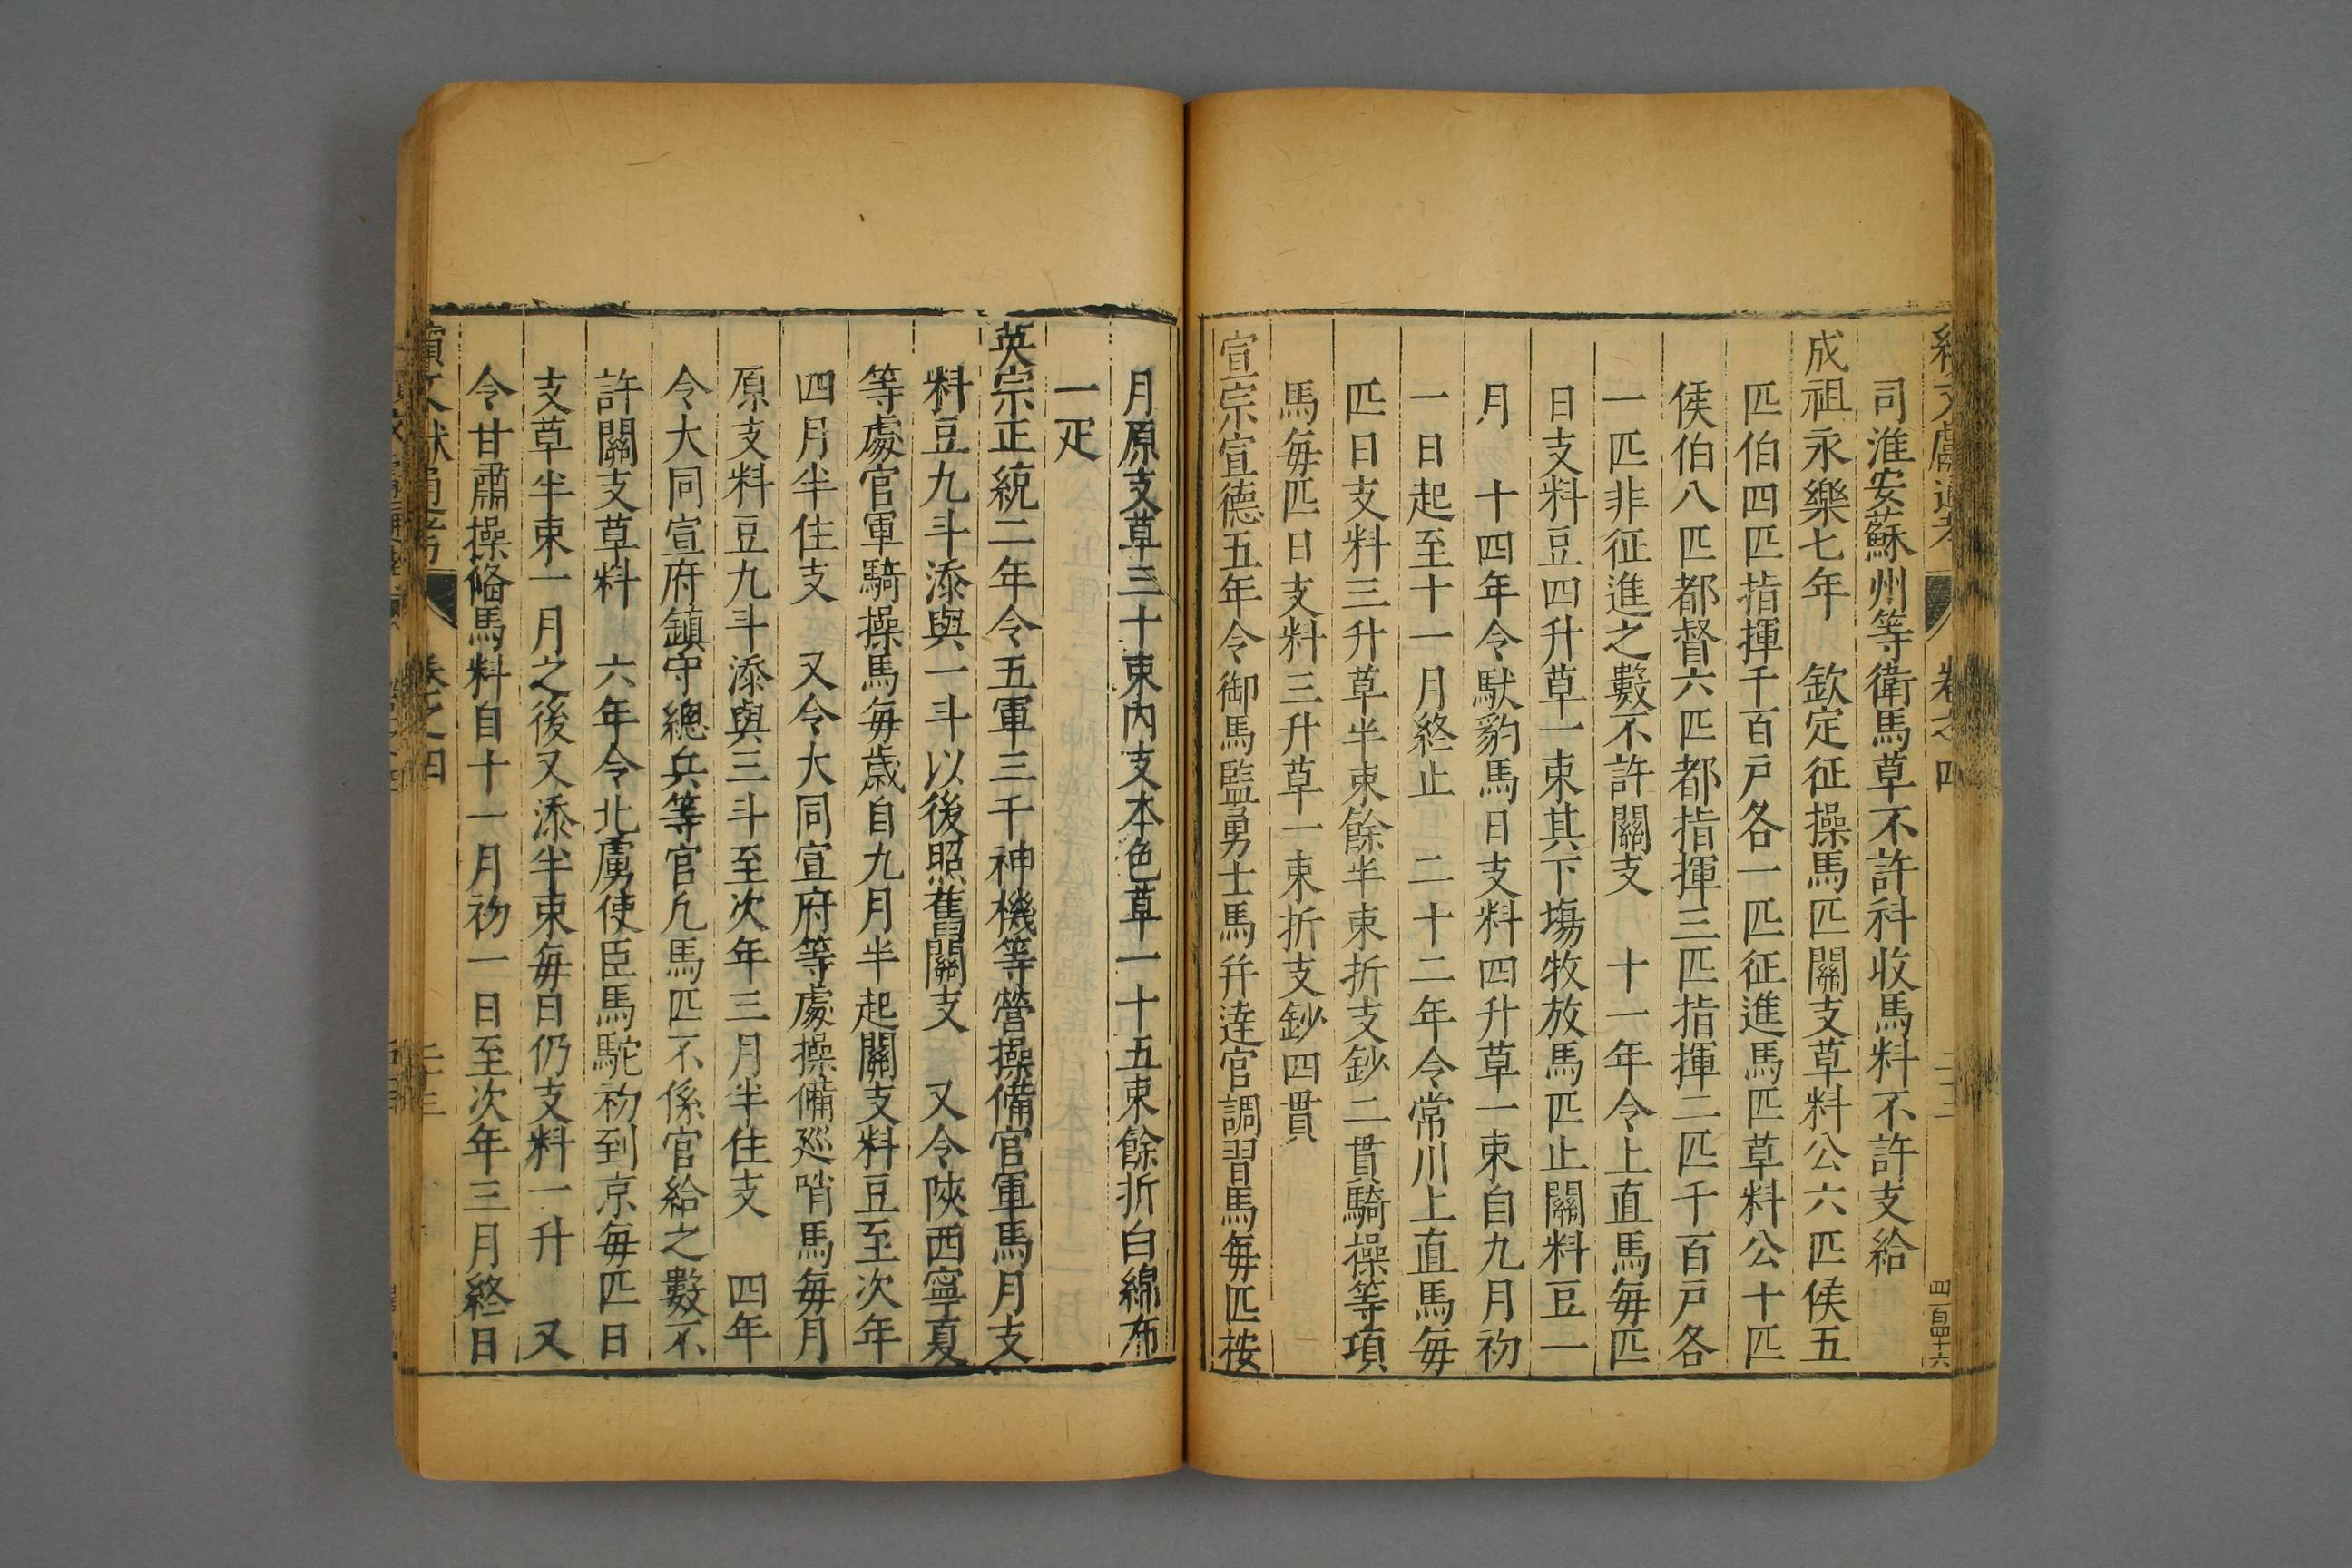 續文獻通考 卷之四 二十二 四百四十六
司淮安蘇州等衛馬草不許科收馬料不許支給
成祖永樂七年 欽定征操馬匹關支草料公六匹侯五
匹伯四匹指揮千百戸各一匹征進馬匹草料公十匹
侯伯八匹都督六匹都指揮三匹指揮二匹千百戸各
一匹非征進之數不許關支 十一年令上直馬每匹
日支料豆四升草一束其下塲牧放馬匹止關料豆一
月 十四年令馱豹馬日支料四升草一束自九月初
一日起至十一月終止 二十二年令常川上直馬每
匹日支料三升草半束餘半束折支鈔二貫騎操等項
馬每匹日支料三升草一束折支鈔四貫
宣宗宣德五年令御馬監勇士馬并達官調習馬每匹按
月原支草三十束內支本色草一十五束餘折白綿布
一疋
英宗正統二年令五軍三千神機等營操備官軍馬月支
料豆九斗添與一斗以後照舊關支 又令陜西寧夏
等處官軍騎操馬每歲自九月半起關支料豆至次年
四月半住支 又令大同宣府等處操備廵哨馬每月
原支料豆九斗添與三斗至次年三月半住支 四年
令大同宣府鎮守總兵等官凢馬匹不係官給之數不
許關支草料 六年令北虜使臣馬駝初到京每匹日
支草半束一月之後又添半束每日仍支料一升 又
令甘肅操備馬料自十一月初一日至次年三月終日
續文獻通考 卷之四 二十三